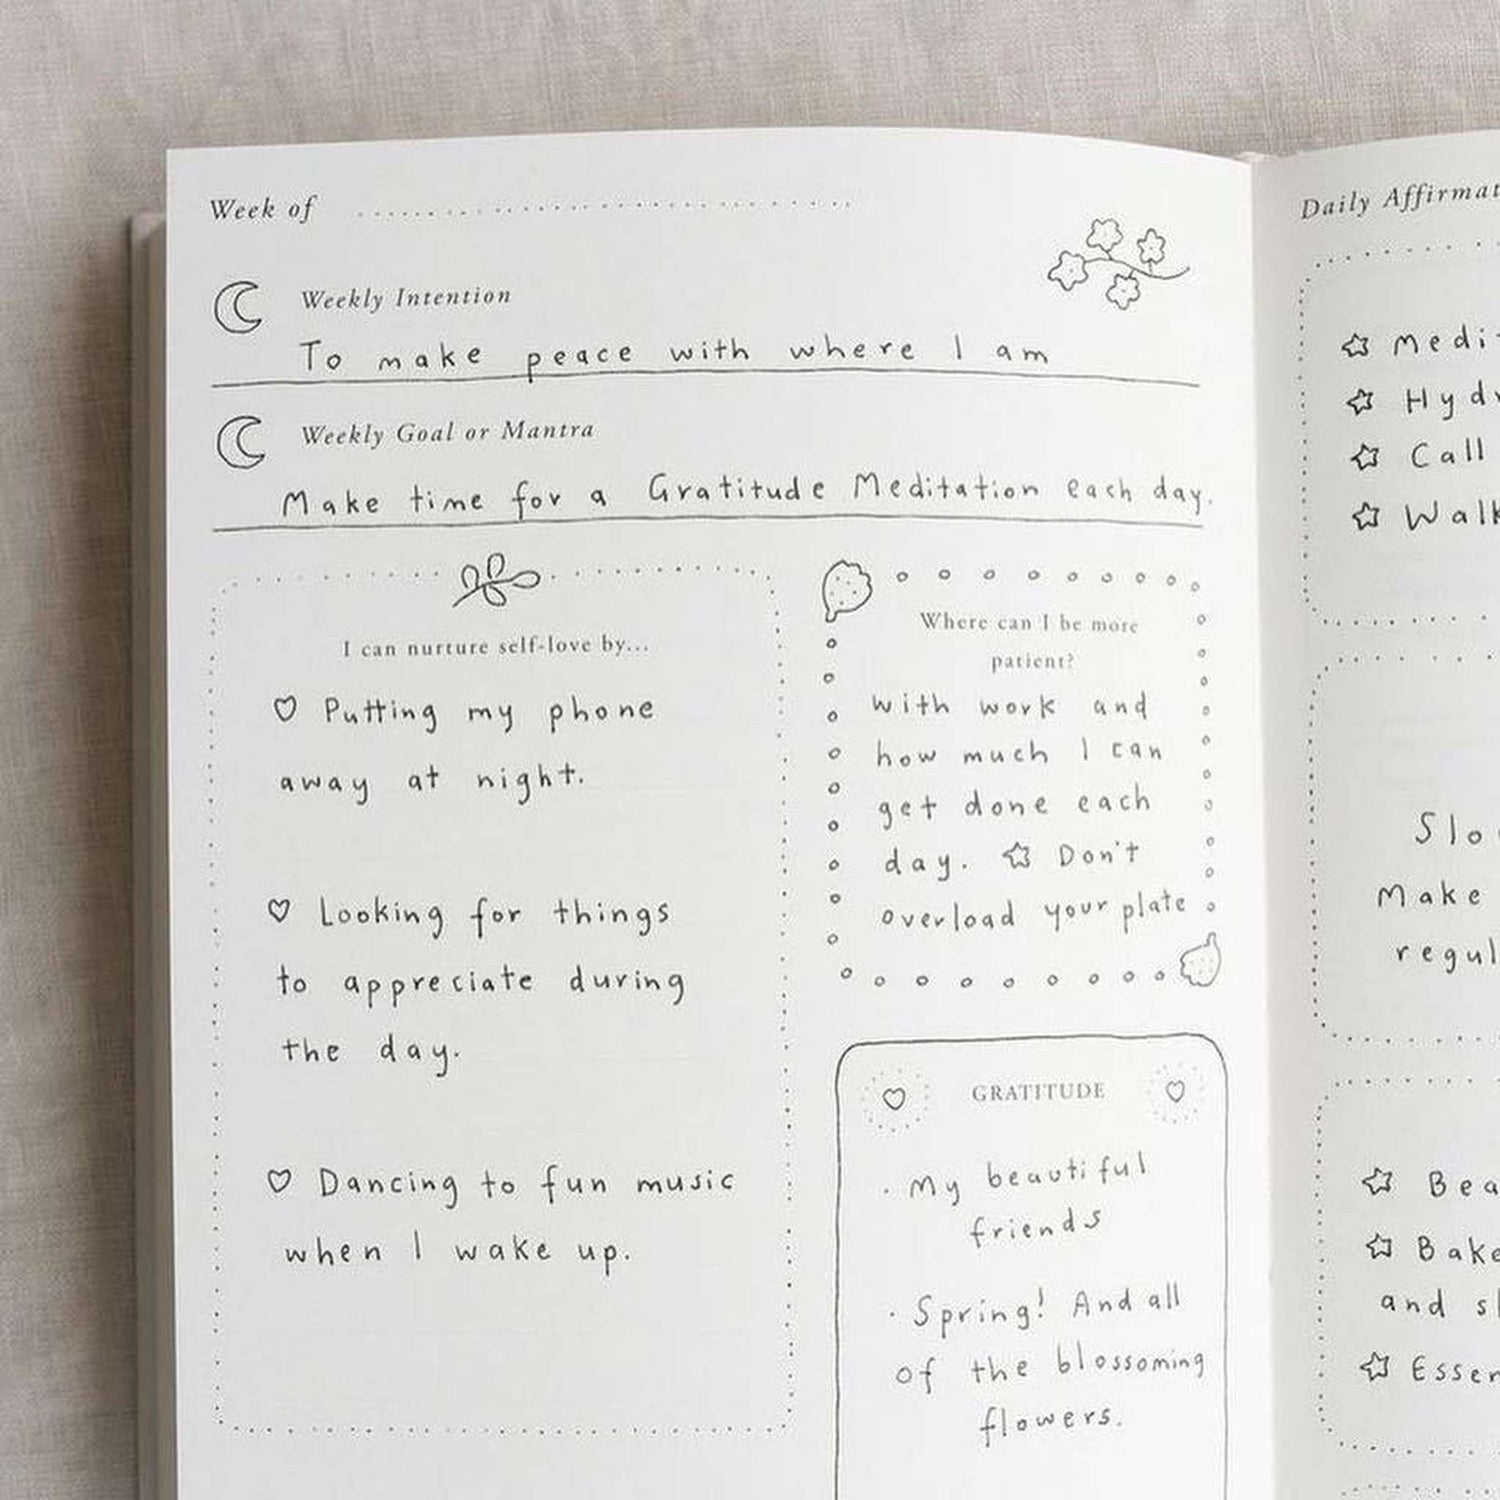 Week of
Weekly Intention
To make peace with where I am
Weekly Goal or Mantra
Make time for a Gratitude Meditation each day.
I can nurture self-love by...
Putting my phone
away at night.
Looking for things
to appreciate during
the day.
Dancing to fun music
when I wake up.
Where can I be more
patient?
with work and
how much I can
get done each
day. Don't
overload your plate
GRATITUDE
· My beautiful
friends
· Spring! And all
of the blossoming
flowers.
Daily
Call
Make
and